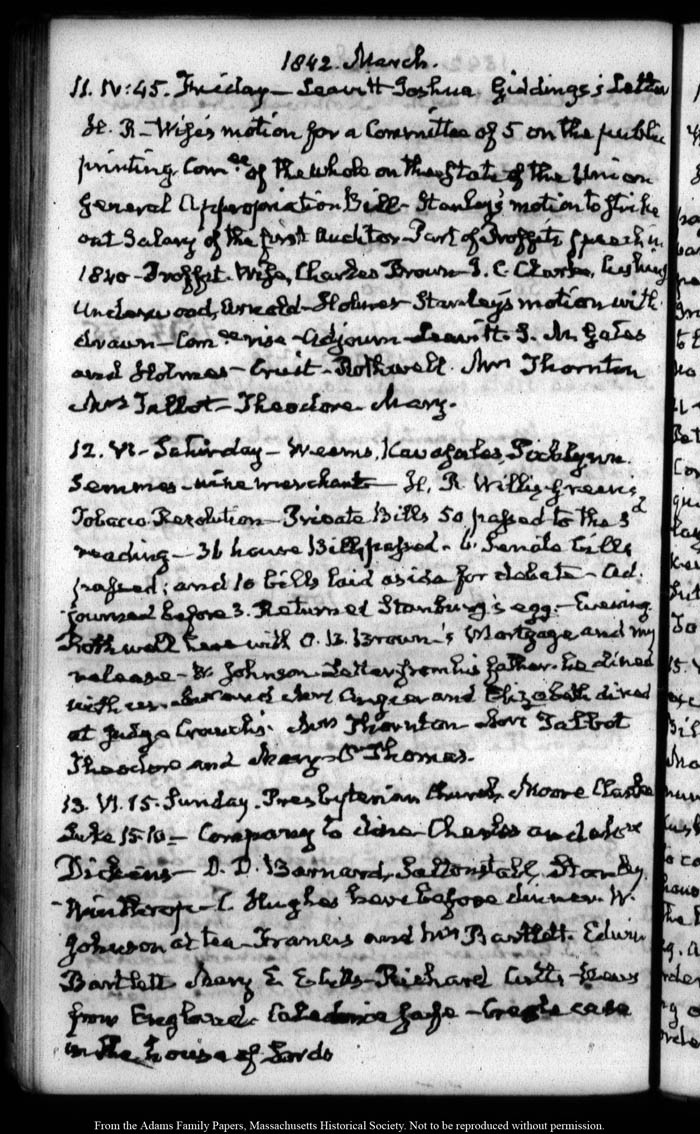 1842. March.
11. IV:45. Friday – Leavitt Joshua Giddings's Letter
H. R – Wise's motion for a Committee of 5 on the public
printing Comee of the whole on the State of the Union
General Appropriation Bill – Stanley's motion to strike
out Salary of the first Auditor – Part of Proffit's speech in
1840 – Proffit. Wise, Charles Brown – S. C. Clarke, Cushing
Underwood, Arnold – Holmes – Stanley's motion with
drawn – Comee rise – Adjourn – Leavitt. S. M. Gates
and Holmes – Cruit – Rothwell. Mrs Thornton
Mrs Talbot – Theodore Mary.
12. VI – Saturday – Weems, Kavasales,
Semmes – wine merchant – H. R. Willis Green's
Tobacco Resolution – Private Bills 50 passed to the 3d
reading – 36 house Bills passed – 6. Senate bills
passed; and 10 bills laid aside for debate – Ad
journed before 3. Returned Stanbury's egg. – Evening
Rothwell here with O. B. Brown's Mortgage and my
release – W. Johnson Letter from his father. he dined
with us. and Mary Angier and Elizabeth dined
at Judge Cranch's. Mrs Thornton Mrs Talbot
Theodore and Mary – Dr Thomas.
13. VI. 15. Sunday. Presbyterian Church, Moore Clarke
Luke 15.10 – Company to dine – Charles and Mrs
Dickens – D. D. Barnard, Saltonstall, Stanley,
Winthrop – C. Hughes here before dinner. W.
Johnson at tea – Francis and Mrs Bartlett. Edwin
Bartlett Mary E Cutts – Richard Cutts – News
from England. Caledonia safe – Creole case
in the house of Lords
From the Adams Family Papers, Massachusetts Historical Society. Not to be reproduced without permission.